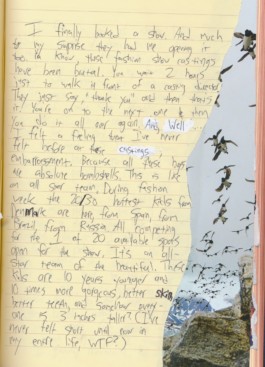 I finally booked a show. And much
to my suprise they had me opening it
too. Ya know, these fashion show castings
have been brutal. You wait 2 hours
just to walk in front of a casting director
they just say "thank you" and then that's
it. You're on to the next one to then
you do it all over again. And, Well
I felt a feeling today I've never
felt before at these castings
embarrassment. Because all these boys
are absolute bombshells. This is like
an all star team. During fashion
week the 2/30 hottest kids from
Denmark are here, from Spain, from
Brazil, from Russia. All competing
for the 1 of 20 available spots
open for the show. It's an all-
star team of the beautiful. These
kids are 10 years younger and
10 times more gorgeous, better skin,
better teeth, and somehow every-
one is 3 inches taller? (I've
never felt short until now in
my entire life, WTF?)